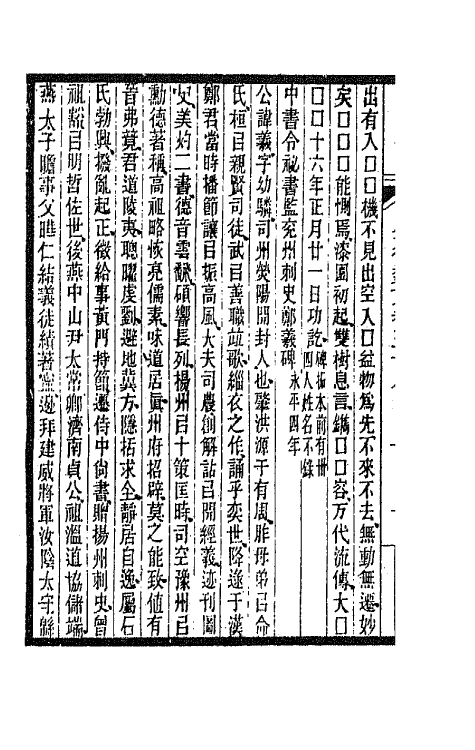 出有入口口機不見出空入口益物爲先不來不去無動無遷妙
矣口口口能惻焉漆園初起雙樹息言鐫口口容万代流傳大口
口口十六年正月廿一日功訖碑搨本前有卌四人姓名不錄
中書令祕書監兗州刺史鄭羲碑永平四年
公諱羲字幼驎司州滎陽開封人也肇洪源于有周胙母弟㠯命
氏桓㠯親賢司徒武㠯善職竝歌緇衣之作誦乎奕世降逮于漢
鄭君當時播節讓㠯振高風大夫司農創解詁㠯開經義迹刊圖
史美灼二書德音雲翻碩響長列揚州㠯十策匡時司空豫州㠯
勳德著稱高祖略恢亮儒素味道居眞州府招辟莫之能致値有
晉弗競君道陵夷聰曜虔劉避地冀方隱括求全靜居自逸屬石
氏勃興撥亂起正徵給事黃門侍郎遷侍中尙書贈揚州刺史曾
祖豁㠯明哲佐世後燕中山尹太常卿濟南貞公祖溫道協儲端
燕太子瞻事父曄仁結義徒績著寧邊拜建威將軍汝陰太守緜